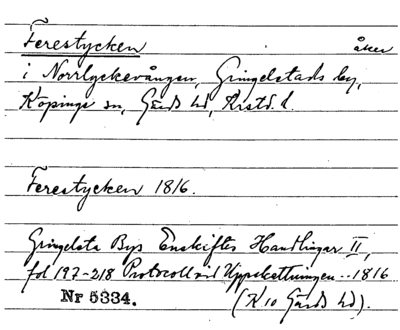 Ferestycken åker
i Norrlyckevången, Gringelstads by,
Köpinge sn, Gärds hd, Krstd. l.
Ferestycken 1816.
Gringelsta Bys Enskiftes Handlingar II,
fol 197-218 Protocoll vid Uppskattningen .. 1816
Nr 5334. (K 10 Gärds hd).